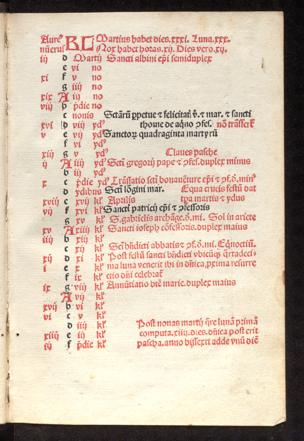 Aure⁹ KL Martius habet dies. xxxi. Luna. xxx.
nũerul Nox habet horas. xij. Dies vero. xij.
iij d Martij Sancti albini ep̃i semiduplex
e vi no
xi f v no
g iiij no
xix A iij no
viij b p̃die no
c nonis Sctãrũ ꝑpetue ⁊ felicitatĩ v̓. ⁊ mar. ⁊ sancti
xvi d viij yd⁹ thome de aqno ꝯfes.
v e vij yd⁹ Sanctoꝝ quadraginta martyrũ
f vi yd⁹
g v yd⁹ Claues pasche
A iiij yd⁹ Scti gregorij pape ⁊ ꝯfes. duplex minus
b iij yd⁹
x c p̃die yd⁹ Trãslatio scti bonauẽture ep̃i ⁊ ꝯf. õ. min⁹
d ydibus Sctĩ lõgini mar. Equa crucis festũ dat
xviij e xvij kl̓ Aprilis tpa martis ⁊ ydus
vij f xvi kl̓ Sancti patricij ep̃i ⁊ ꝯfessoris
g xv kl̓ S. gabrielis archãge. õ. mi. Sol in ariete
xv A xiiij kl̓ Sancti ioseph cõfessoris. duplex maius
iiij b xiij kl̓
c xij kl̓ Sc̃ti bñdicti abbatis ⁊ ꝯf. õ. mi. Eqnoctiũ.
xij d xi kl̓ Post festũ sancti bñdicti
i e x kl̓ ma luna venerit ibi in dñica, prima resurre
f ix kl̓ ctio dñi celebrat̃
ix g viij kl̓ Annũtiatio btẽ marie. duplex maius
A vij kl̓
xvij b vi kl̓
vi c v kl̓
d iiij kl̓ Post nonas martij q̃re lunã primã
xiiij e iij kl̓ computa. xiiij. dies. dñica post erit
iij f p̃die kl̓ pascha. anno bissexti adde vnũ diẽ